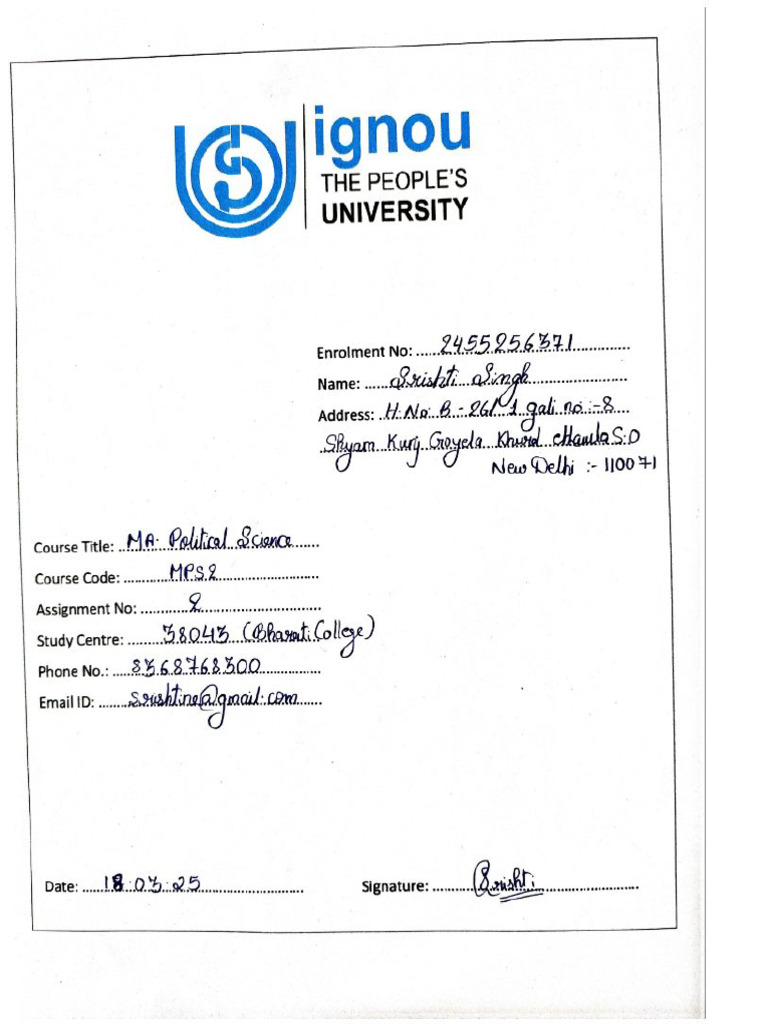 ignou
THE PEOPLE'S
UNIVERSITY
Enrolment No: 2455256371
Name: Srishti Singh
Address: H.No B - 26/1 gali no :-8
Shyam Kunj Goyela Khurd S.O
New Delhi :- 110071
Course Title: MA. Political Science
Course Code: MPS2
Assignment No: 2
Study Centre: 38043 (Bharati College)
Phone No.: 8368768300
Email ID: srishtine@gmail.com
Date: 18.03.25
Signature: Srishti